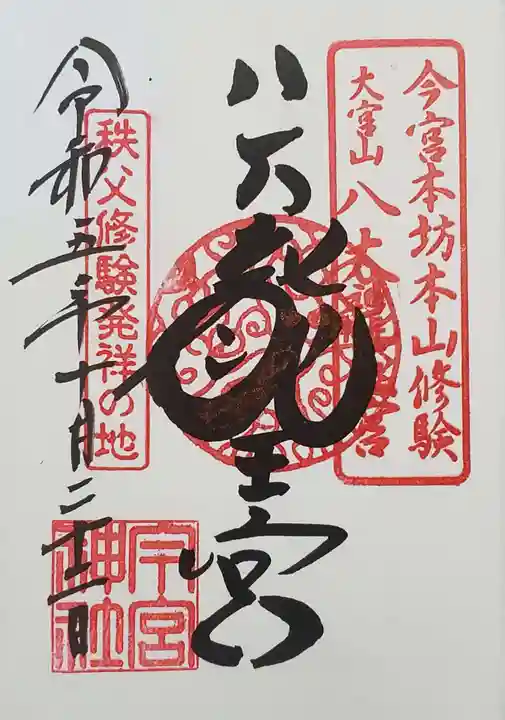 今宮本坊本山修験
大宮山八大龍王宮
八大龍王宮
秩父修験発祥の地
令和五年十月二十二日
今宮神社